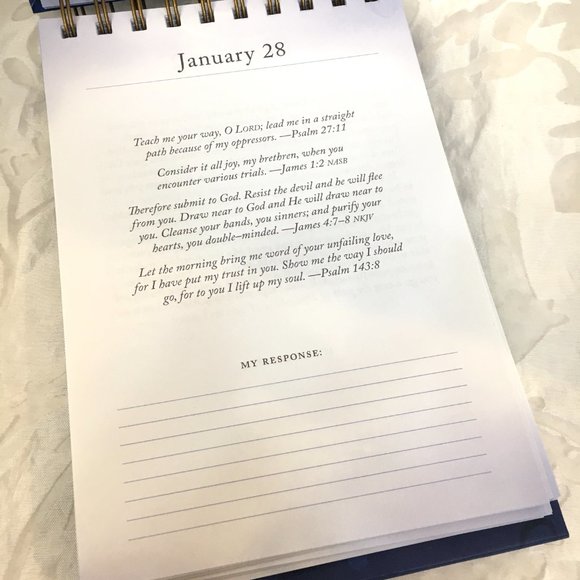 January 28
Teach me your way, O LORD; lead me in a straight
path because of my oppressors. —Psalm 27:11
Consider it all joy, my brethren, when you
encounter various trials. —James 1:2 NASB
Therefore submit to God. Resist the devil and he will flee
from you. Draw near to God and He will draw near to
you. Cleanse your hands, you sinners; and purify your
hearts, you double–minded. —James 4:7–8 NKJV
Let the morning bring me word of your unfailing love,
for I have put my trust in you. Show me the way I should
go, for to you I lift up my soul. —Psalm 143:8
MY RESPONSE: